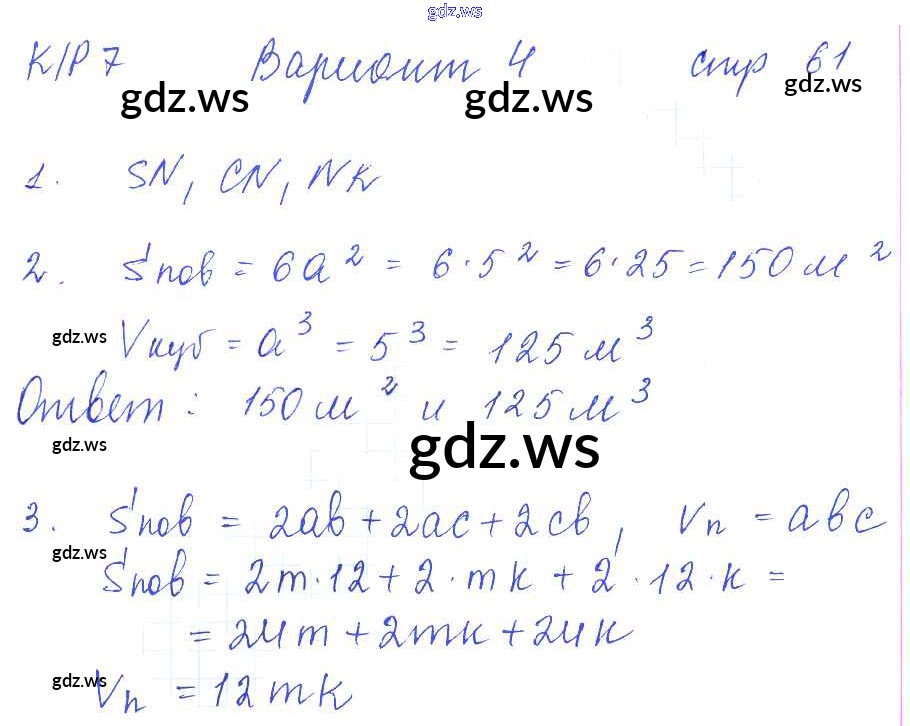 gdz.ws
К/Р 7 Вариант 4 стр 61
gdz.ws gdz.ws gdz.ws
1. SN, CN, NK
2. Sпов = 6a² = 6·5² = 6·25 = 150 м²
gdz.ws Vкуб = a³ = 5³ = 125 м³
Ответ: 150 м² и 125 м³
gdz.ws gdz.ws
3. Sпов = 2ab + 2ac + 2cb, Vп = abc
gdz.ws
Sпов = 2m·12 + 2·mk + 2·12·k =
= 24m + 2mk + 24k
gdz.ws Vп = 12mk